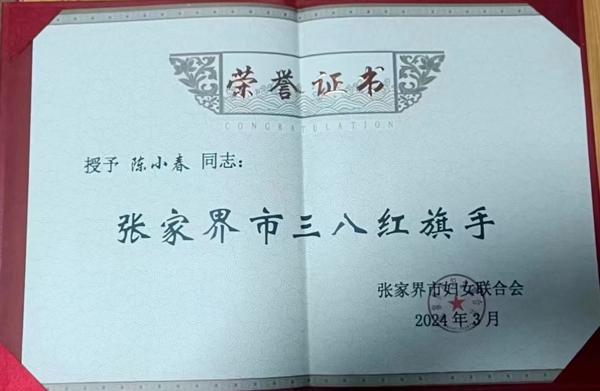 荣誉证书
CONGRATULATION
授予 陈小春 同志：
张家界市三八红旗手
张家界市妇女联合会
2024年3月